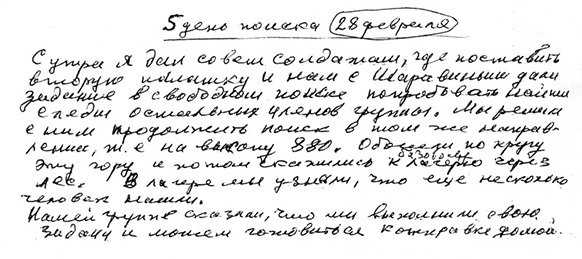 5 день поиска (28 февраля)
С утра я дал совет солдатам, где поставить
вторую палатку и нам с Шаравиным дали
задание в свободном поиске попробовать найти
следы остальных членов группы. Мы решили
с ним продолжить поиск в том же направ-
лении, т.е на высоту 880. Обошли по кругу
эту гору и потом скатились к базовому лагерю через
лес. В лагере мы узнали, что еще несколько
человек нашли.
Нашей группе сказали, что мы выполнили свою
задачу и можем готовиться к отправке домой.